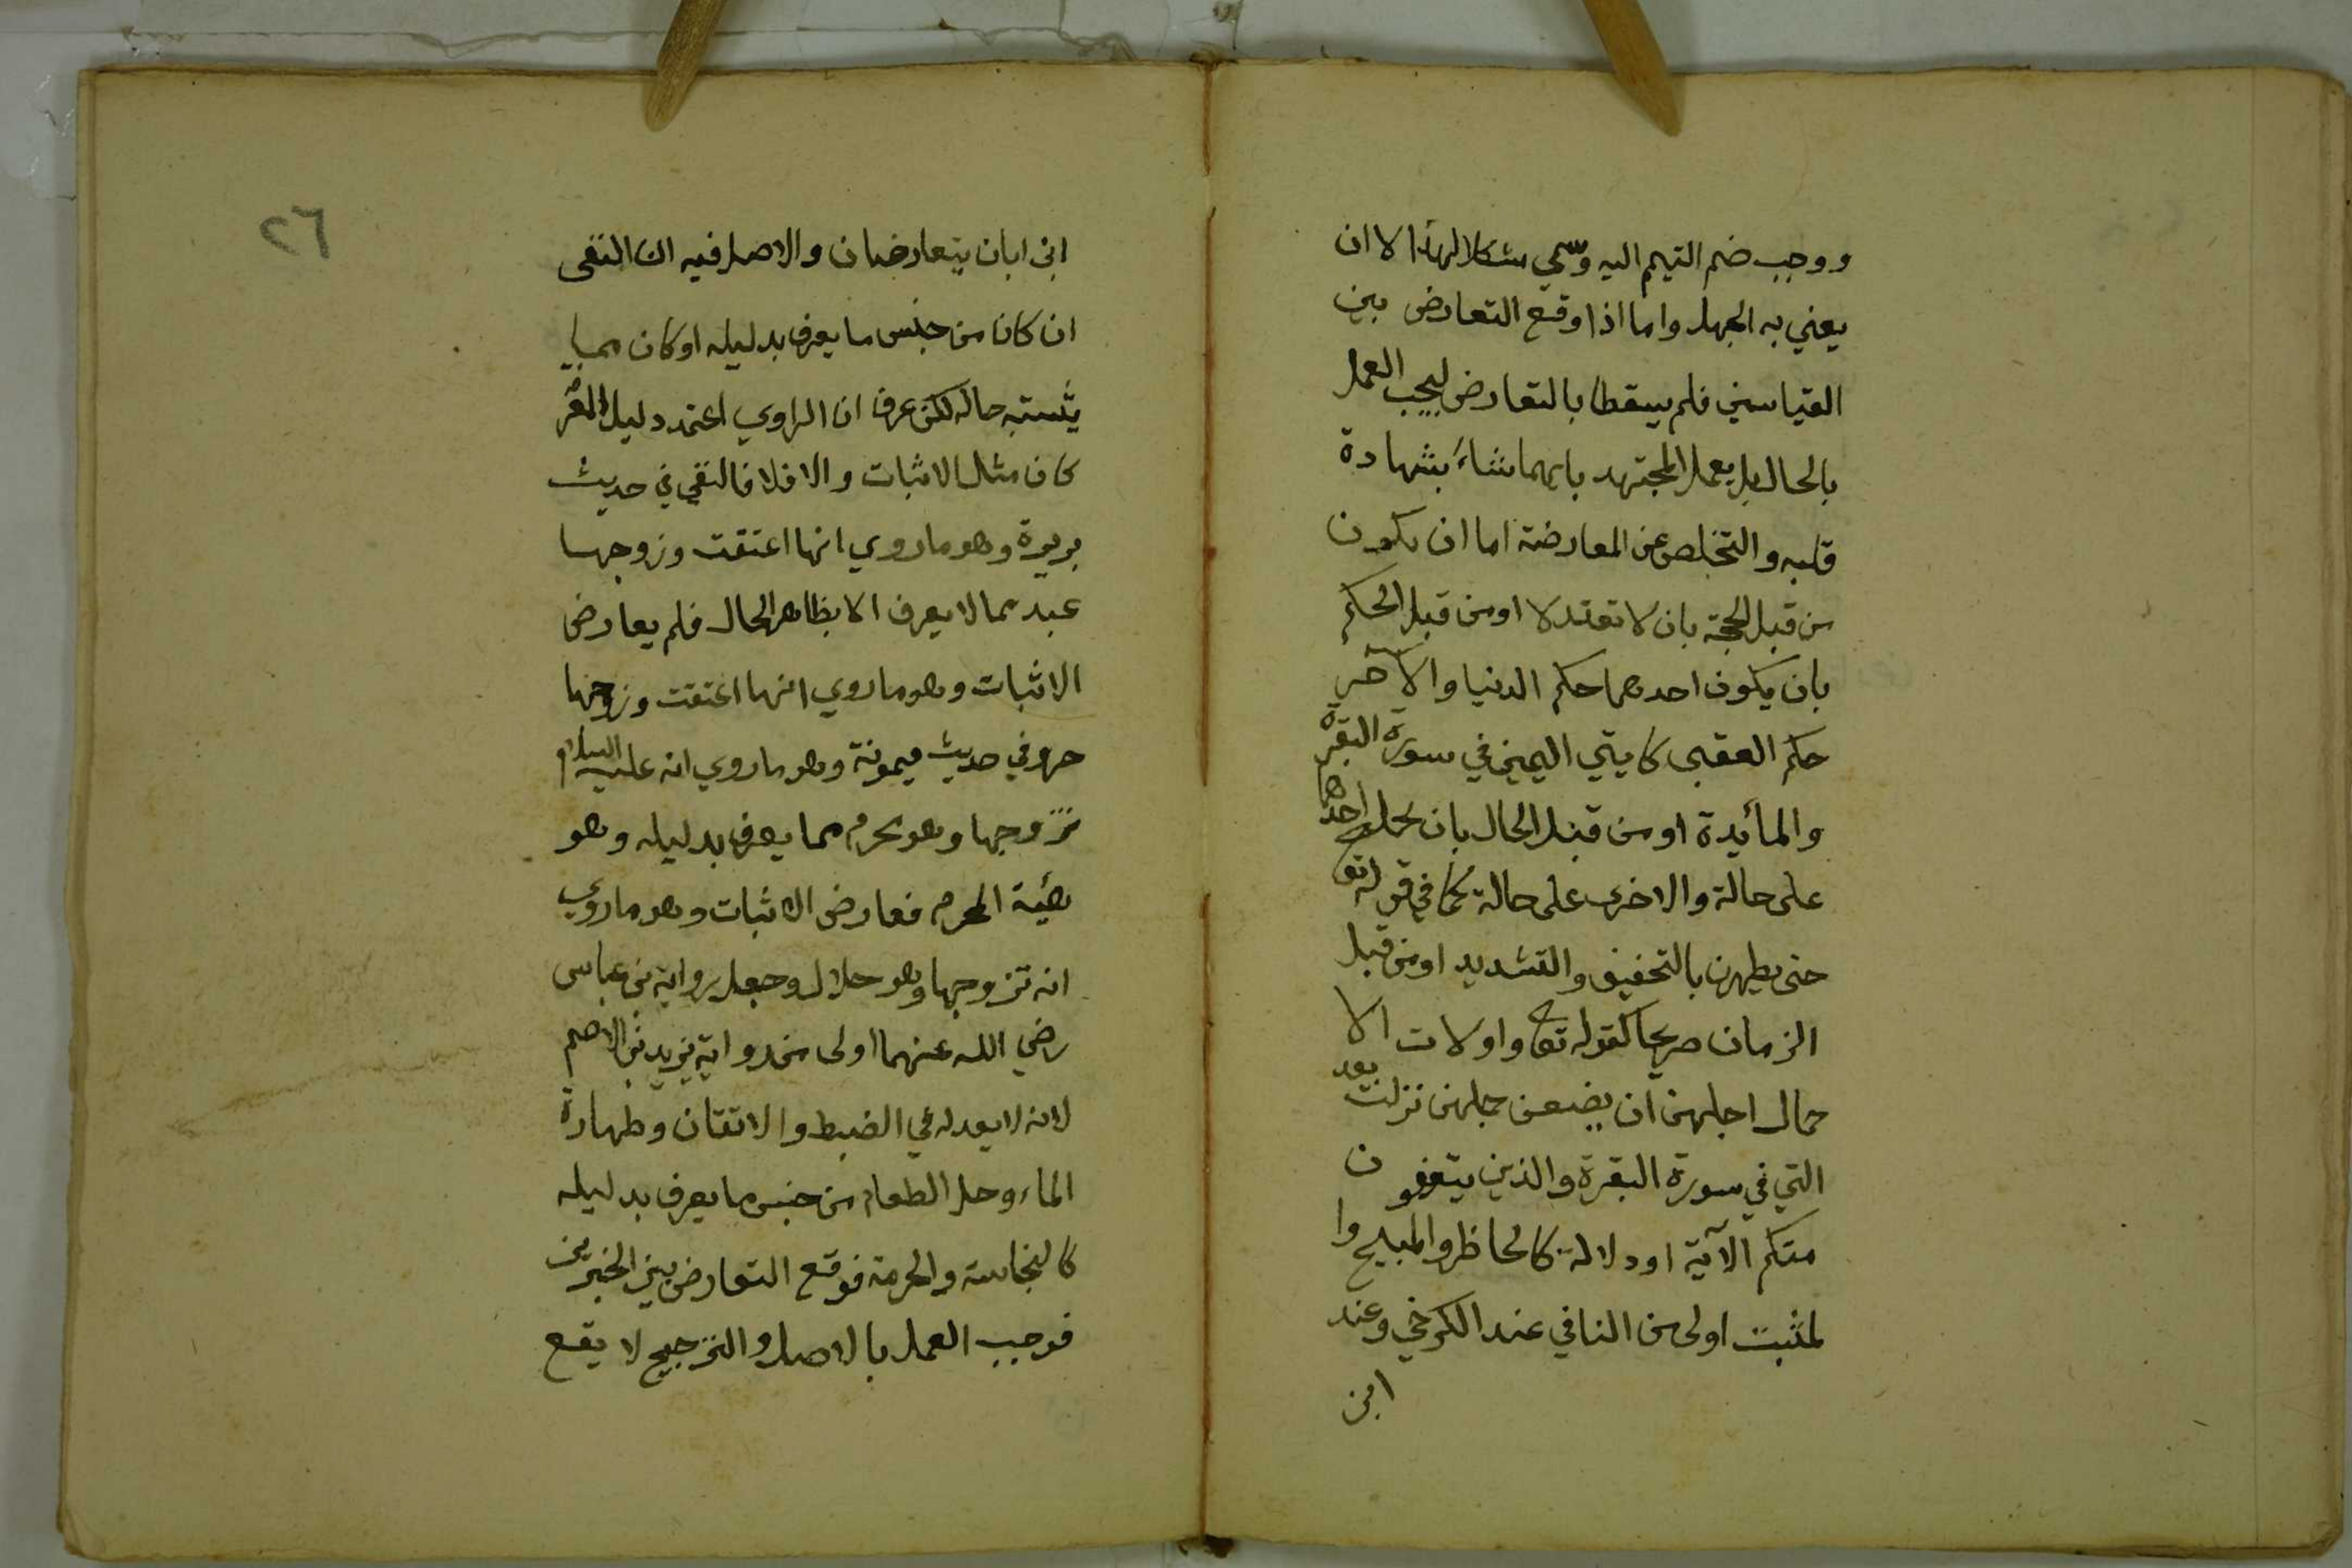 ووجب ضم التيمم اليه وسمي مشكلا لهذا لا ان
يعني به الجهل واما اذا وقع التعارض بين
القياسين فلم يسقطا بالتعارض ليجب العمل
بالحال بل يعمل المجتهد بايهما شاء بشهادة
قلبه والتخلص عن المعارضة اما ان يكون
من قبل الحجة بان لا تعتدلا او من قبل الحكم
بان يكون احدهما حكم الدنيا والآخر
حكم العقبى كايتي اليمين في سورة البقرة
والمائدة او من قبل الحال بان يحمل احدهما
على حالة والاخرى على حالة كما في قوله تع
حتى يطهرن بالتخفيف والتشديد او من قبل
الزمان صريحا كقوله تع واولات الا
حمال اجلهن ان يضعن حملهن نزلت بعد
التي في سورة البقرة والذين يتوفون
منكم الآية او دلالة كالحاظر والمبيح وا
لمثبت اولى من النافي عند الكرخي وعند
ابن
٢٦
ابن ابان يتعارضان والاصل فيه ان النفى
ان كان من جنس ما يعرف بدليله او كان مما
يشتبه حاله لكن عرف ان الراوي اعتمد دليل المعرفة
كان مثل الاثبات والا فلا فالنفي في حديث
بريرة وهو ما روي انها اعتقت وزوجها
عبد مما لا يعرف الا بظاهر الحال فلم يعارض
الاثبات وهو ما روي انها اعتقت وزوجها
حر وفي حديث ميمونة وهو ما روي انه عليه السلام
تزوجها وهو محرم مما يعرف بدليله وهو
هيئة المحرم فعارض الاثبات وهو ما روي
انه تزوجها وهو حلال وجعل رواية بن عباس
رضي الله عنهما اولى من رواية يزيد بن الاصم
لانه لا يعدله في الضبط والاتقان وطهارة
الماء وحل الطعام من جنس ما يعرف بدليله
كالنجاسة والحرمة فوقع التعارض بين الخبرين
فوجب العمل بالاصل والترجيح لا يقع